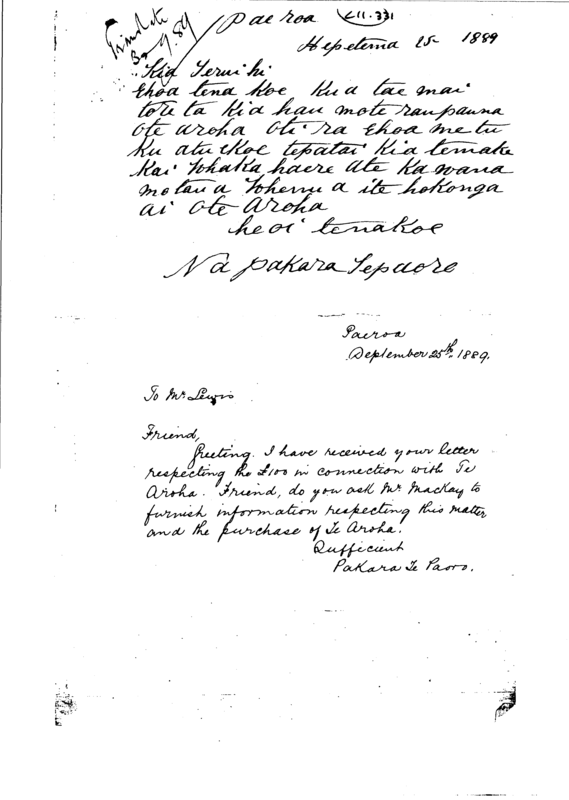 Translate
30.9.89
Pae roa E11.331
Hepetema 25 1889
Kia Teruihi
Ehoa tena koe Kua tae mai
to reta Kia hau mote raupauna
Ote aroha Oti ra Ehoa me tu
Ku atu Ekoe tepatai Kia temake
Kai Whaka haere ate Kawana
motaua Whenua ite hokonga
ai Ote aroha
heoi tenakoe
Na pakara Tepaoro
Paeroa
September 25th 1889.
To Mr. Lewis
Friend,
Greeting. I have received your letter
respecting the £100 in connection with Te
Aroha. Friend, do you ask Mr Mackay to
furnish information respecting this matter
and the purchase of Te Aroha.
Sufficient
Pakara Te Paoro.